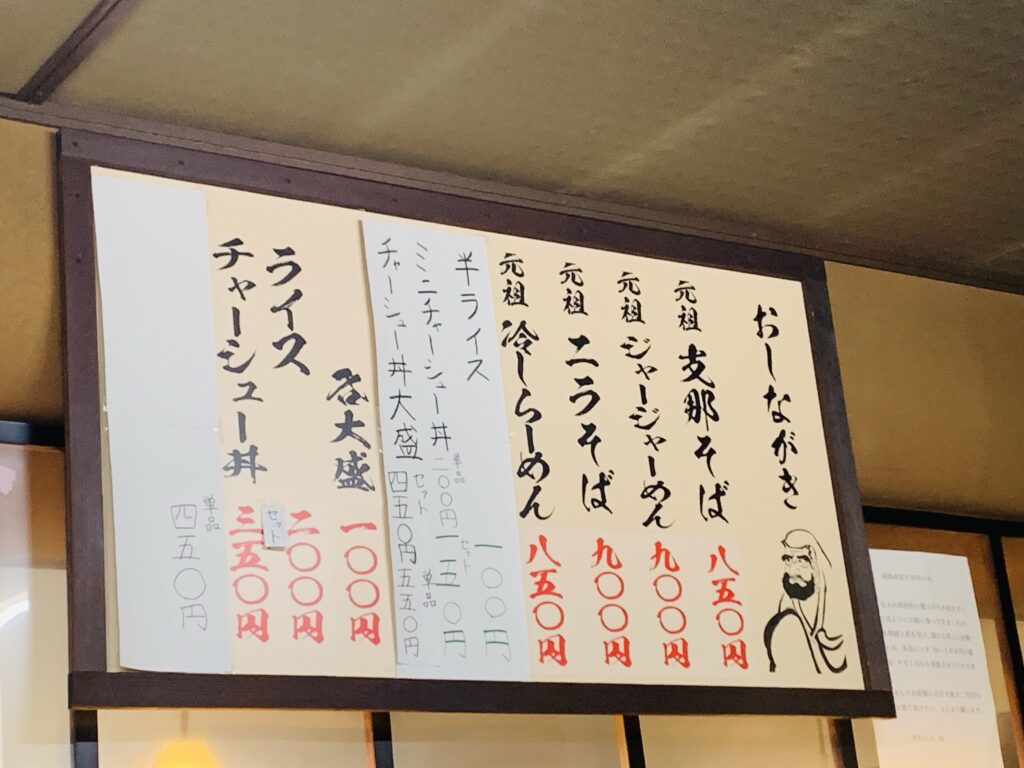 おしながき
元祖 支那そば 八五〇円
元祖 ジャージャーめん 九〇〇円
元祖 ニラそば 九〇〇円
元祖 冷しらーめん 八五〇円
半ライス 一〇〇円
ミニチャーシュー丼 単品 二〇〇円 セット 一五〇円
チャーシュー丼大盛 セット 四五〇円 単品 五五〇円
各大盛 一〇〇円
ライス 二〇〇円
チャーシュー丼 セット 三五〇円
単品 四五〇円